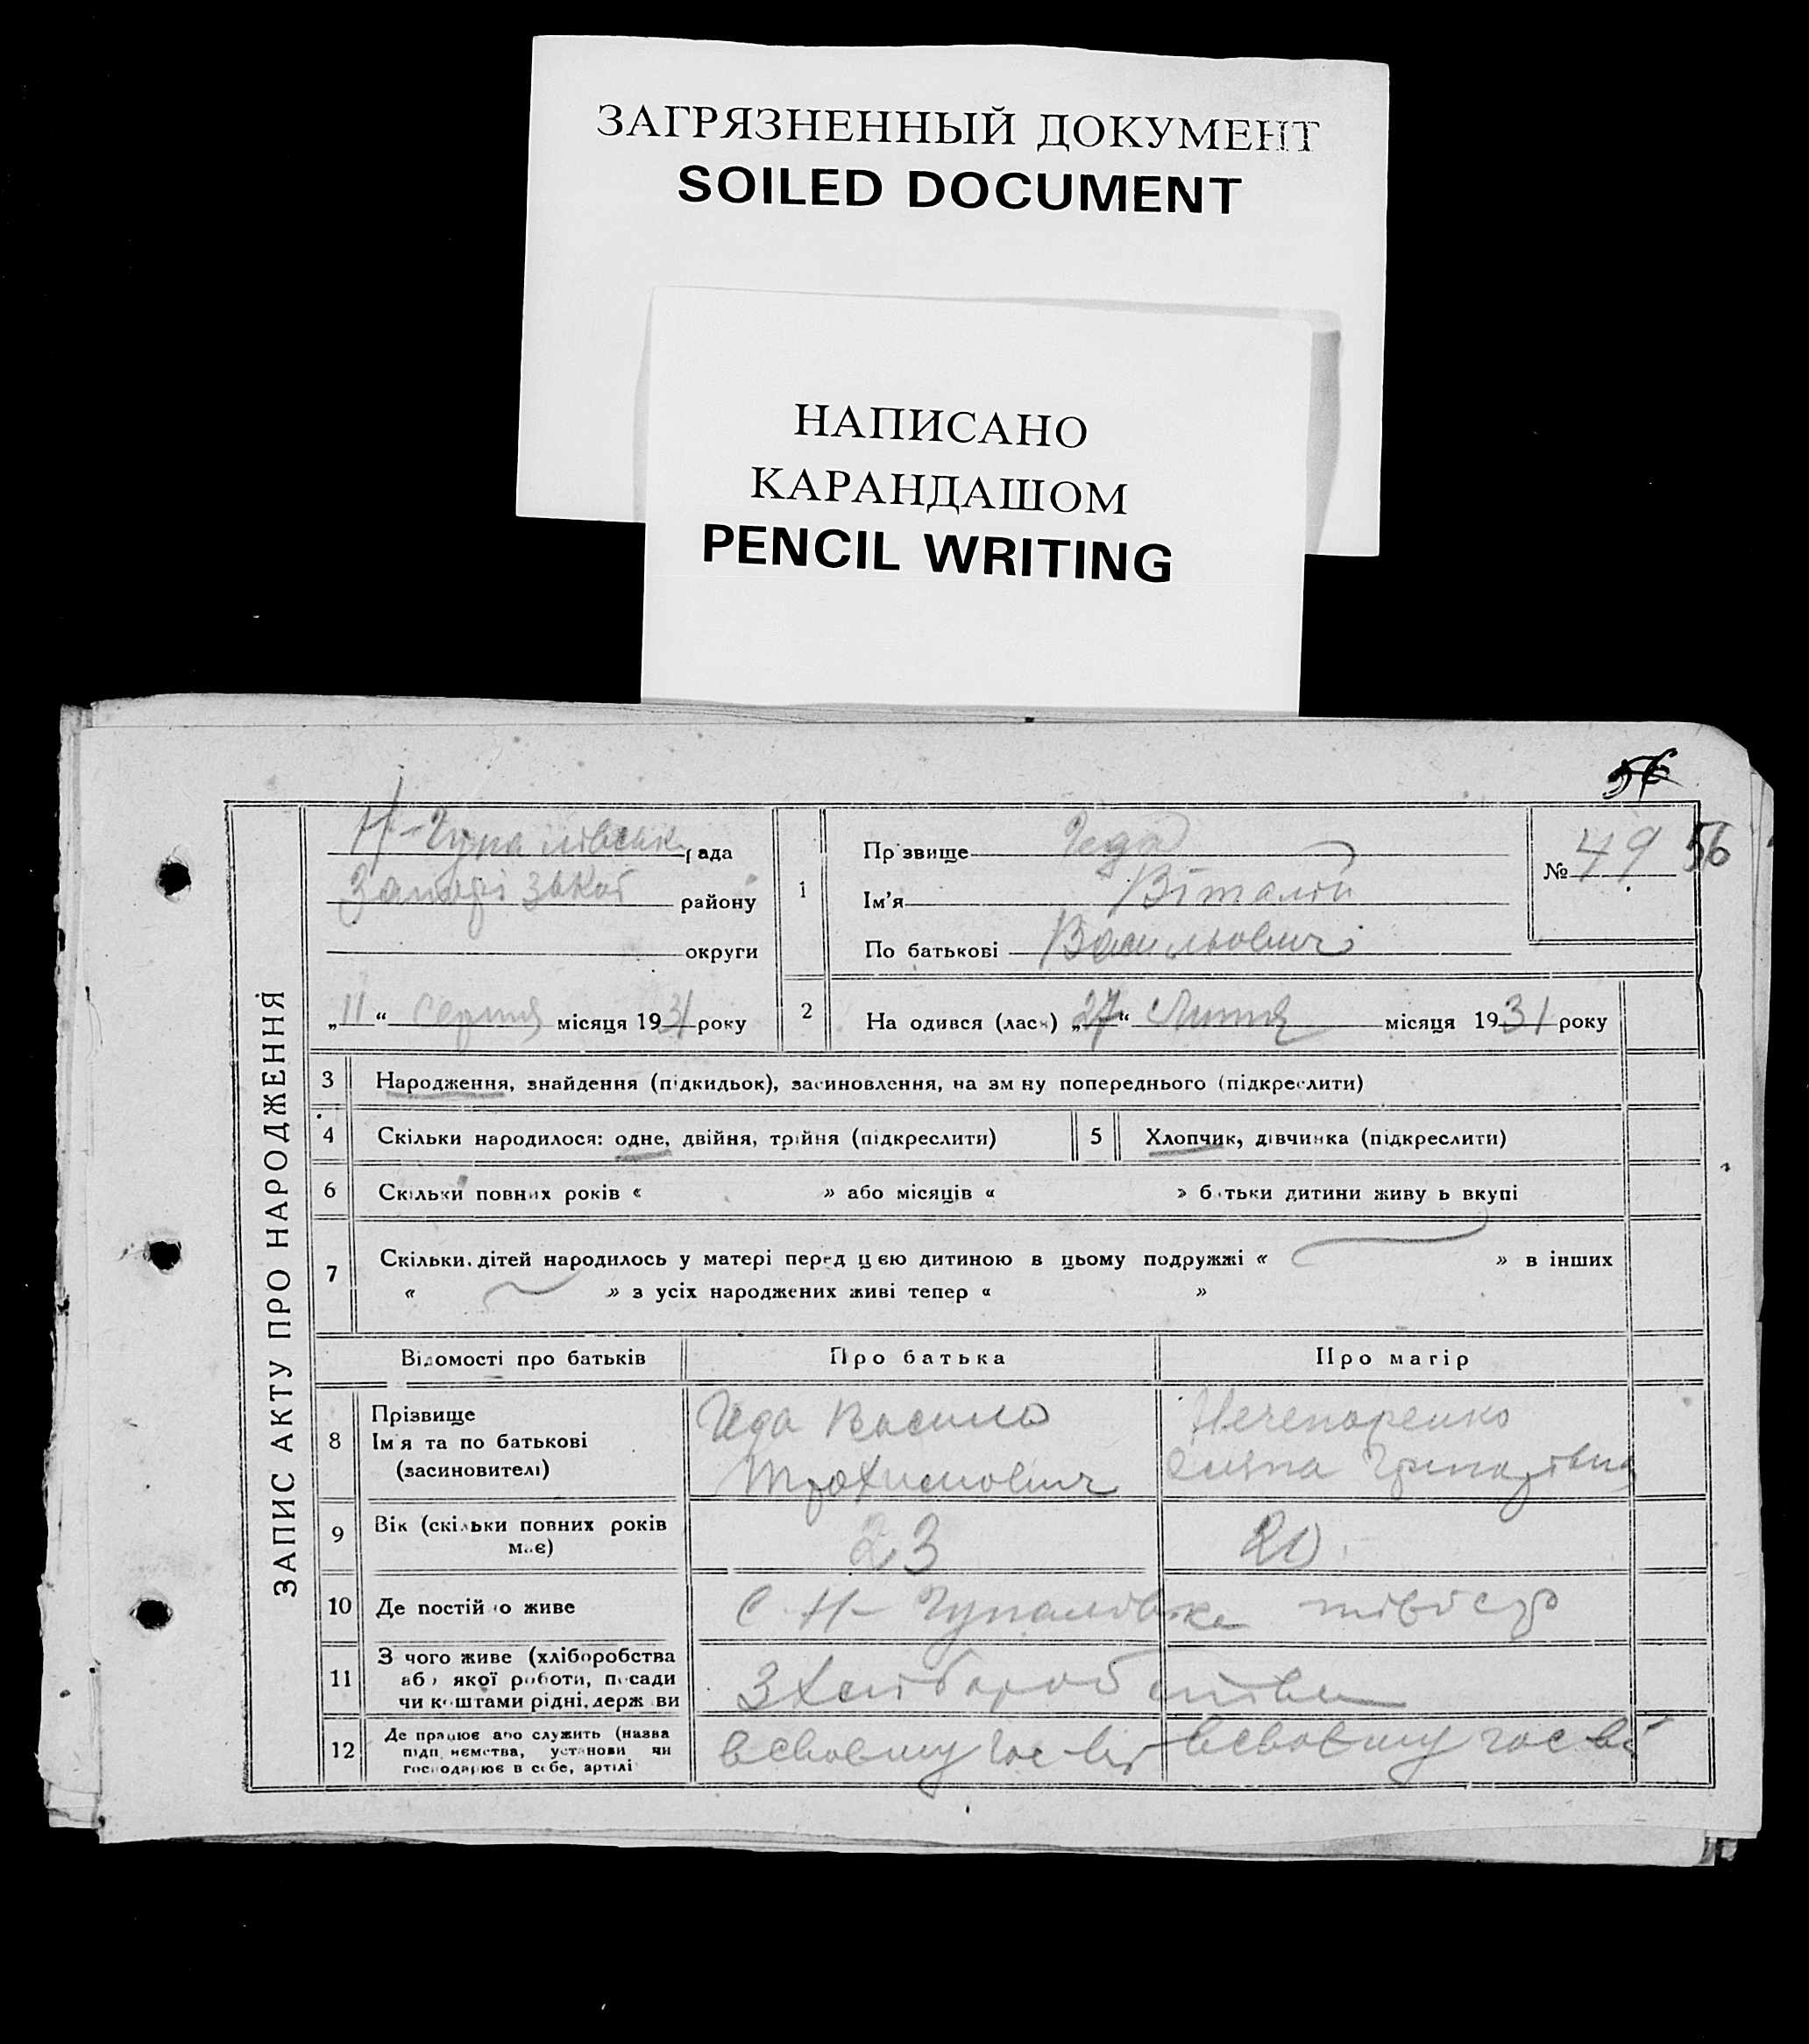 ЗАГРЯЗНЕННЫЙ ДОКУМЕНТ
SOILED DOCUMENT
НАПИСАНО
КАРАНДАШОМ
PENCIL WRITING
56
ЗАПИС АКТУ ПРО НАРОДЖЕННЯ
рада
району
округи
„11“ серпня місяця 1931 року
1
Прізвище
Ім'я Віталій
По батькові Васильович
№ 49 56
2 Народився (лася) „27“ Липня місяця 1931 року
3 Народження, знайдення (підкидьок), засиновлення, на зміну попереднього (підкреслити)
4 Скільки народилося: одне, двійня, трійня (підкреслити)
5 Хлопчик, дівчинка (підкреслити)
6 Скільки повних років « » або місяців « » батьки дитини живуть вкупі
7 Скільки дітей народилось у матері перед цією дитиною в цьому подружжі « » в інших
« » з усіх народжених живі тепер « »
Відомості про батьків Про батька Про матір
8 Прізвище
Ім'я та по батькові
(засиновителі)
Василь
Трохимович
Нечепоренко
9 Вік (скільки повних років
має)
23 20
10 Де постійно живе с. Н-Гупаловка
11 З чого живе (хліборобства
або якої роботи, посади
чи коштами рідні, держави
З Хліборобства
12 Де працює або служить (назва
підприємства, установи чи
господарює в себе, артілі
в своєму гос-ві в своєму гос-ві